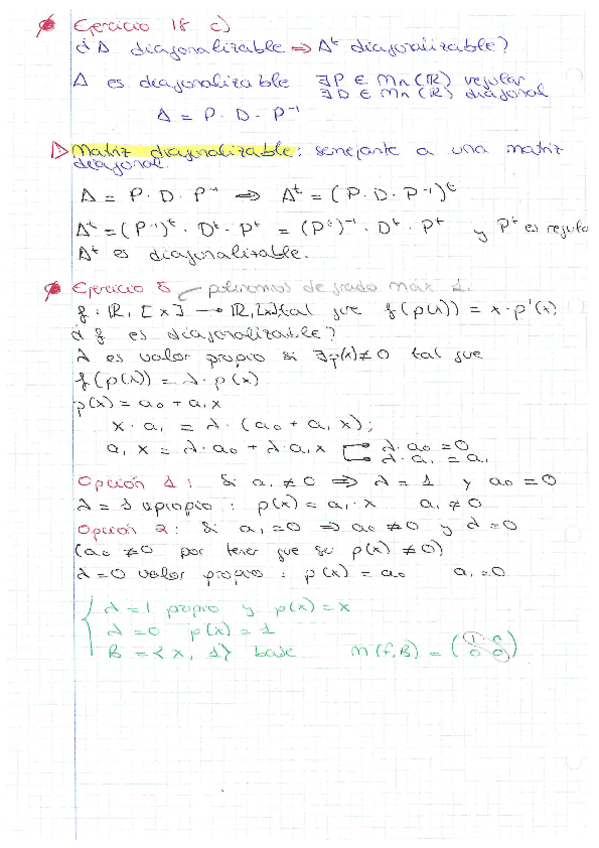 Ejercicio 18 c)
¿A diagonalizable ⇒ Aᵗ diagonalizable?
A es diagonalizable ∃P ∈ Mn(ℝ) regular
∃D ∈ Mn(ℝ) diagonal
A = P · D · P⁻¹
Matriz diagonalizable: semejante a una matriz
diagonal.
A = P · D · P⁻¹ ⇒ Aᵗ = (P · D · P⁻¹)ᵗ
Aᵗ = (P⁻¹)ᵗ · Dᵗ · Pᵗ = (Pᵗ)⁻¹ · Dᵗ · Pᵗ y Pᵗ es regula
Aᵗ es diagonalizable.
Ejercicio 5 polinomios de grado máx 1.
f : ℝ₁[x] → ℝ₁[x] tal que f(p(x)) = x · p'(x)
¿f es diagonalizable?
λ es valor propio si ∃p(x)≠0 tal que
f(p(x)) = λ · p(x)
p(x) = a₀ + a₁x
x · a₁ = λ · (a₀ + a₁x);
a₁x = λ · a₀ + λ · a₁x λ · a₀ = 0
λ · a₁ = a₁
Opción 1: Si a₁ ≠ 0 ⇒ λ = 1 y a₀ = 0
λ = 1 propio : p(x) = a₁ · x a₁ ≠ 0
Opción 2: Si a₁ = 0 ⇒ a₀ ≠ 0 y λ = 0
(a₀ ≠ 0 por tener que ser p(x) ≠ 0)
λ = 0 valor propio : p(x) = a₀ a₁ = 0
λ = 1 propio y p(x) = x
λ = 0 p(x) = 1
B = {x, 1} base M(f, B) = (1 0
0 0)